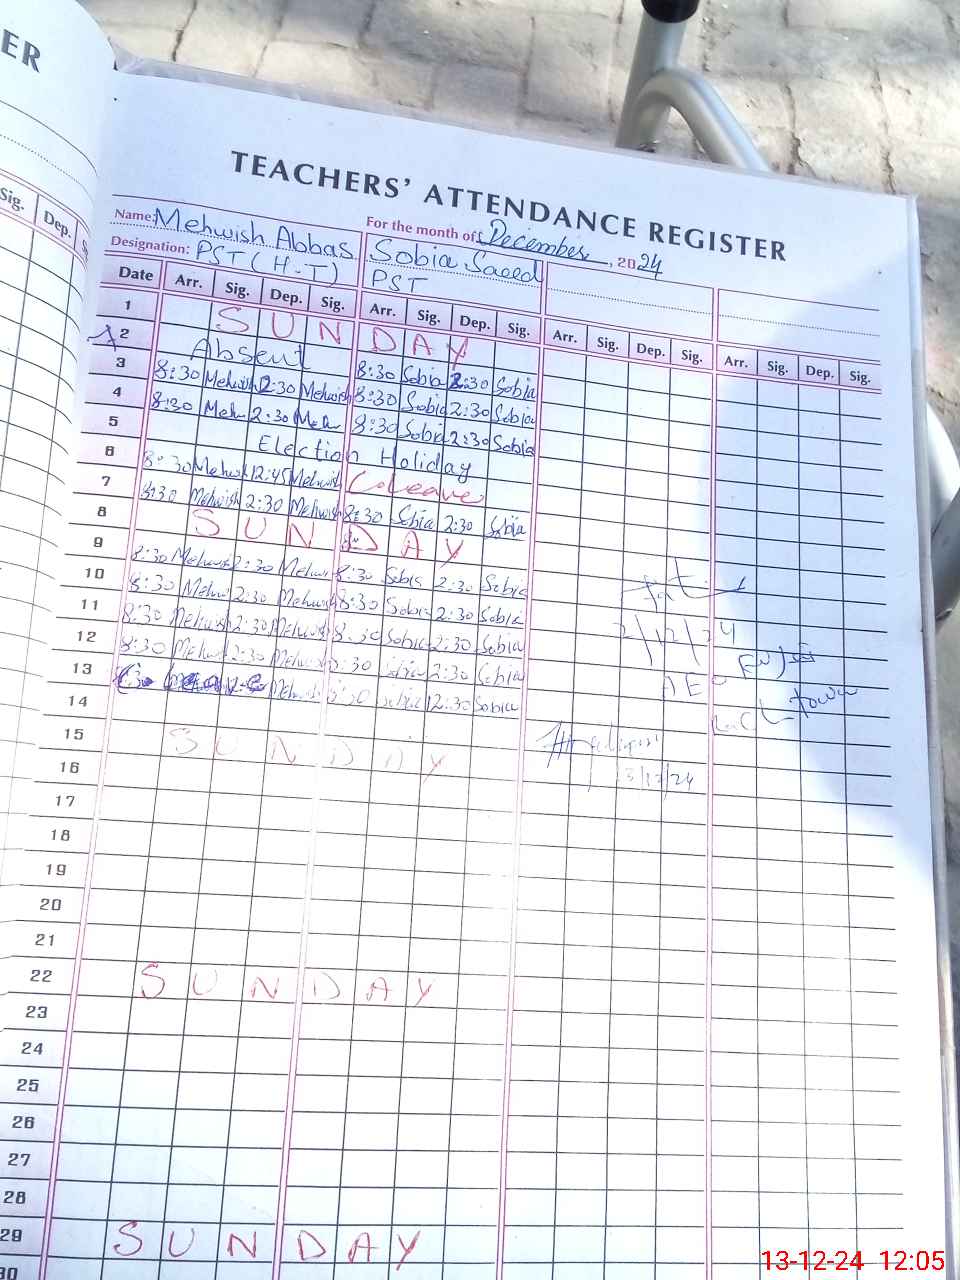 ER
Sig. Dep. S
TEACHERS' ATTENDANCE REGISTER
For the month of December, 2024
Name: Mehwish Abbas Sobia Saeed
Designation: PST (H-T) PST
Date Arr. Sig. Dep. Sig. Arr. Sig. Dep. Sig. Arr. Sig. Dep. Sig. Arr. Sig. Dep. Sig.
1 SUNDAY
2 Absent 8:30 Sobia 2:30 Sobia
3 8:30 Mehwish 2:30 Mehwish 8:30 Sobia 2:30 Sobia
4 8:30 Meh 2:30 Meh 8:30 Sobia 2:30 Sobia
5 Election Holiday
6 8:30 Mehwish 12:45 Mehwish C.Leave
7 8:30 Mehwish 2:30 Mehwish 8:30 Sobia 2:30 Sobia
8 SUNDAY
9 8:30 Mehwish 2:30 Mehwish 8:30 Sobia 2:30 Sobia
10 8:30 Mehwish 2:30 Mehwish 8:30 Sobia 2:30 Sobia
11 8:30 Mehwish 2:30 Mehwish 8:30 Sobia 2:30 Sobia
12 8:30 Mehwish 2:30 Mehwish 8:30 Sobia 2:30 Sobia
13 Mehwish 8:30 Sobia 12:30 Sobia
14
15 SUNDAY
16
17
18
19
20
21
22 SUNDAY
23
24
25
26
27
28
29 SUNDAY
30
2/12/24
AEO
Town
13/12/24
13-12-24 12:05